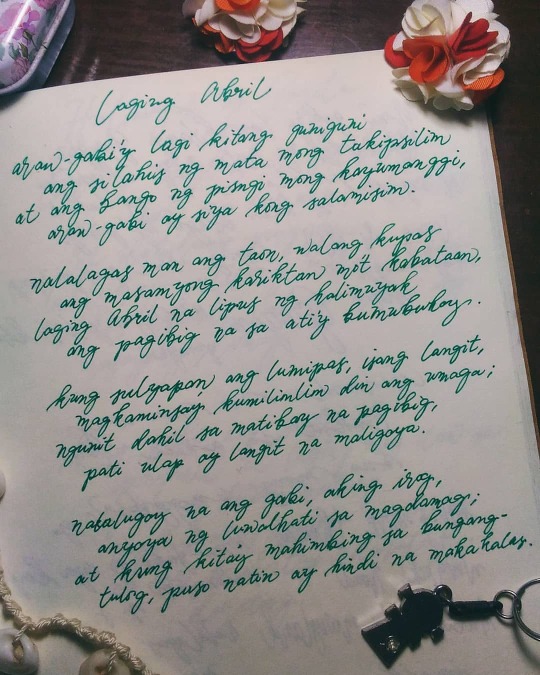 Laging Abril
araw-gabi'y lagi kitang guniguni
ang silahis ng mata mong takipsilim
at ang bango ng pisngi mong kayumanggi,
araw-gabi ay siya kong salamisim.
nalalagas man ang taon, walang kupas
ang masamyong kariktan mo't kabataan,
laging Abril na lipus ng halimuyak
ang pagibig na sa ati'y bumubuhay.
kung sulyapan ang lumipas, isang langit,
magkaminsay kumilimlim din ang umaga;
ngunit dahil sa matibay na pagibig,
pati ulap ay langit na maligaya.
natalugoy na ang gabi, aking irog,
anyaya ng luwalhati sa magdamag;
at kung kita'y mahimbing sa bungang-
tulog, puso natin ay hindi na makakalas.